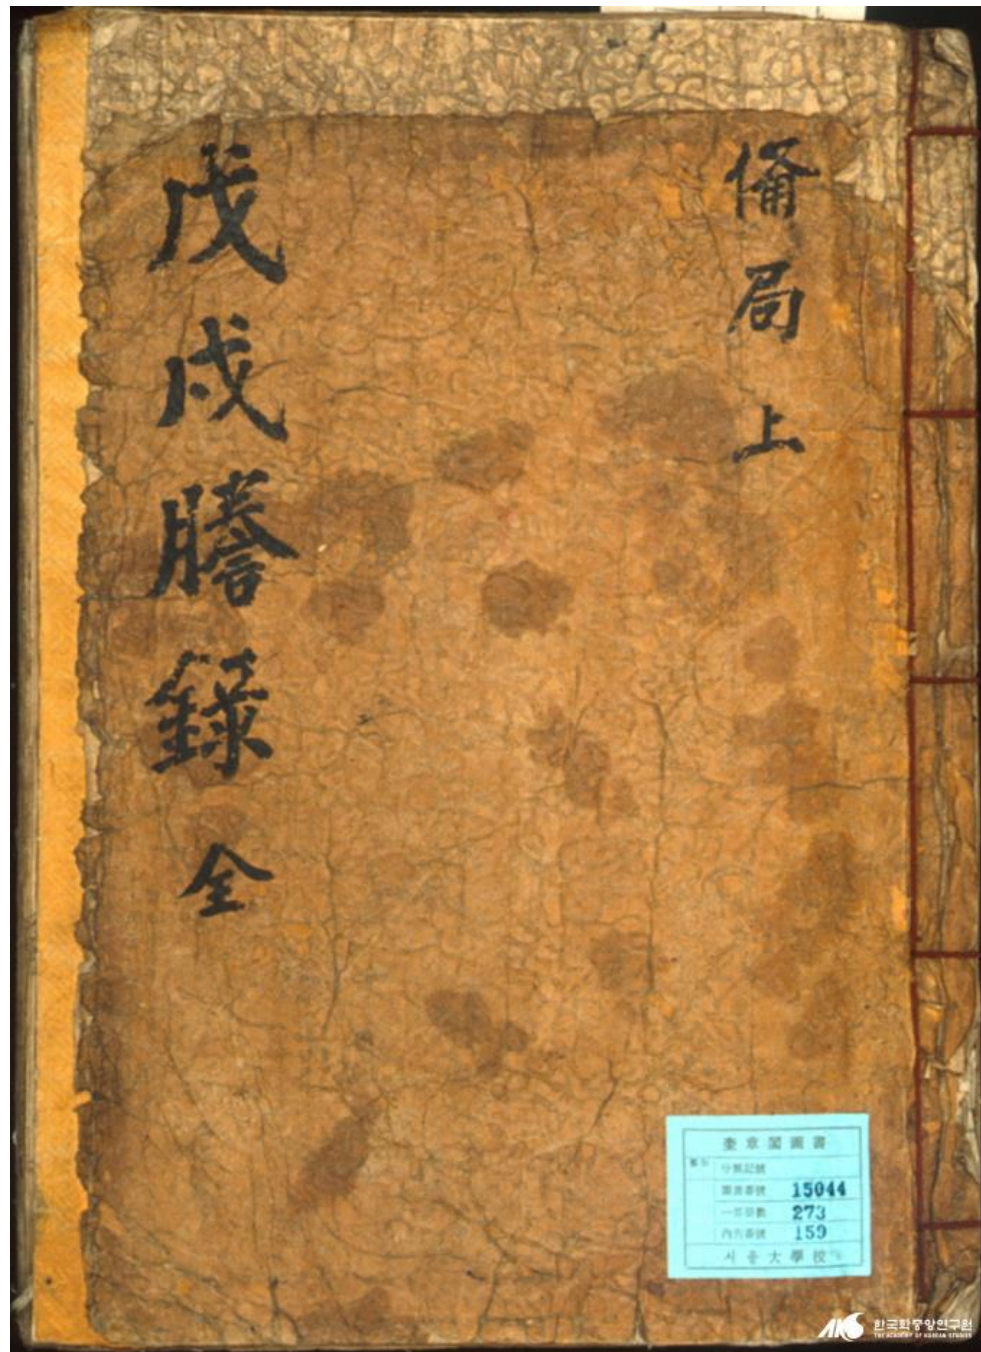 備局上
戊戌謄錄全
奎章閣圖書
分類記號
圖書番號 15044
一部冊數 273
內冊番號 159
서울大學校
AKS 한국학중앙연구원
THE ACADEMY OF KOREAN STUDIES